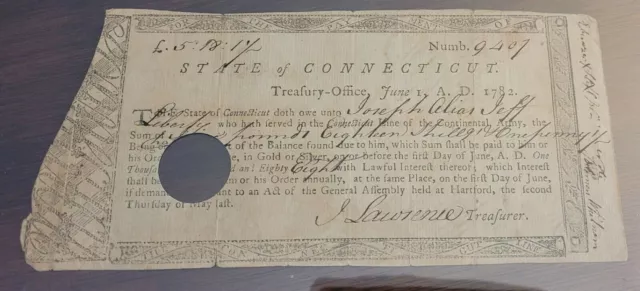 £. 5: 18: 1¼ Numb. 9407
STATE of CONNECTICUT.
Treasury-Office, June 1, A. D. 1782.
State of Connecticut doth owe unto Joseph Alias Jeff
Liberty who hath served in the Connecticut Line of the Continental Army, the
Sum of five pounds Eighteen Shillgs & One penny ¼
Being of the Balance found due to him, which Sum shall be paid to him or
his Order in Gold or Silver, on or before the first Day of June, A. D. One
Thousand and Eighty Eight with Lawful Interest thereof; which Interest
shall be or his Order annually, at the same Place, on the first Day of June,
if demand to an Act of the General Assembly held at Hartford, the second
Thursday of May last.
J Lawrence Treasurer.